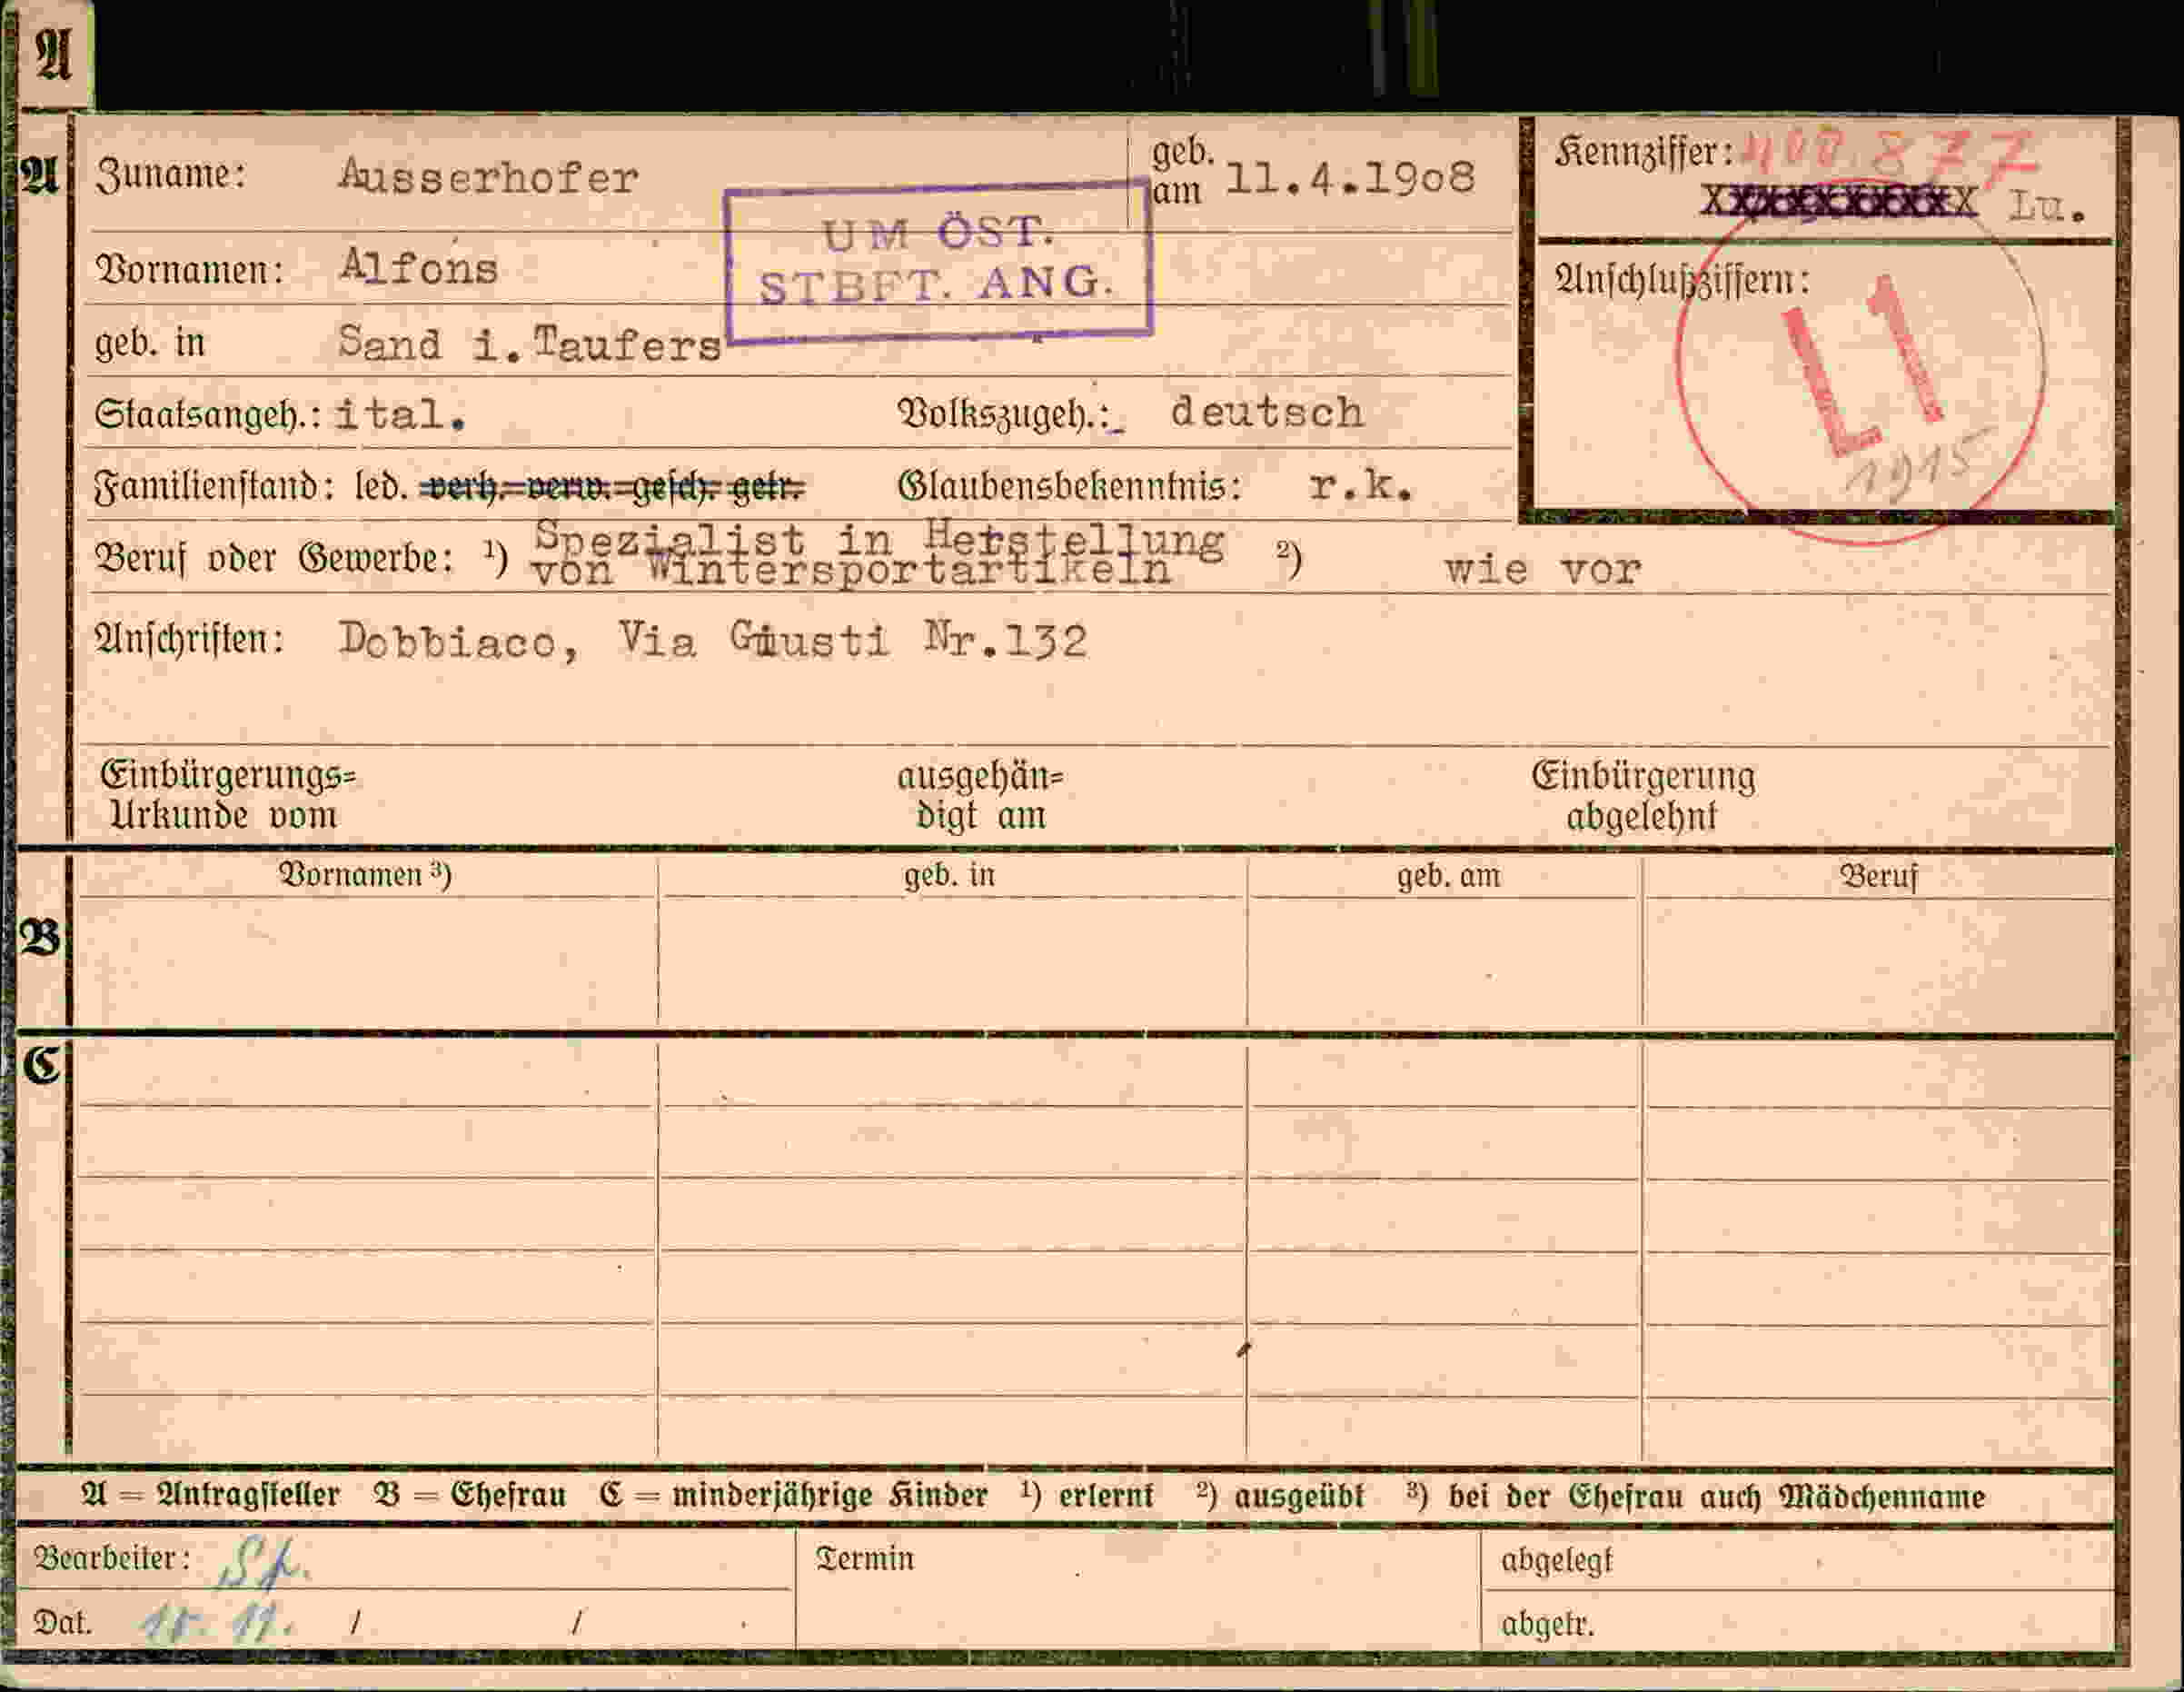 A
A
Zuname: Ausserhofer
geb. am 11.4.1908
Kennziffer: 877
Lu.
UM ÖST.
STBFT. ANG.
Vornamen: Alfons
Anschlußziffern:
L1
1915
geb. in Sand i.Taufers
Staatsangeh.: ital. Volkszugeh.: deutsch
Familienstand: led. verh. verw. gesch. getr. Glaubensbekenntnis: r.k.
Beruf oder Gewerbe: ¹) Spezialist in Herstellung
von Wintersportartikeln ²) wie vor
Anschriften: Dobbiaco, Via Giusti Nr.132
Einbürgerungs= ausgehän= Einbürgerung
Urkunde vom digt am abgelehnt
Vornamen ³) geb. in geb. am Beruf
B
C
A = Antragsteller B = Ehefrau C = minderjährige Kinder ¹) erlernt ²) ausgeübt ³) bei der Ehefrau auch Mädchenname
Bearbeiter: Termin abgelegt
Dat. / / abgetr.